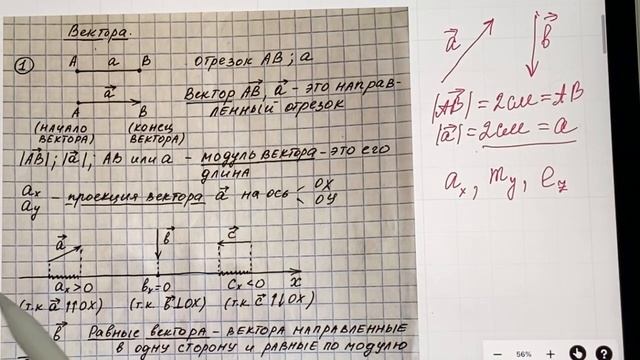 Вектора.
① A a B Отрезок AB; a
a⃗ Вектор AB⃗, a⃗ - это направ-
A B ленный отрезок
(начало вектора) (конец вектора)
|AB⃗|; |a⃗|; AB или a - модуль вектора - это его
длина
aₓ
a_y - проекция вектора a⃗ на ось < OX
OY
a⃗ b⃗ c⃗
aₓ>0 bₓ=0 cₓ<0 x
(т.к. a⃗ ↑↑ OX) (т.к. b⃗ ⊥ OX) (т.к. c⃗ ↑↓ OX)
b⃗ Равные вектора - вектора направленные
в одну сторону и равные по модулю
a⃗ b⃗
|AB⃗| = 2см = AB
|a⃗| = 2см = a
aₓ, m_y, e_z
− 56% +